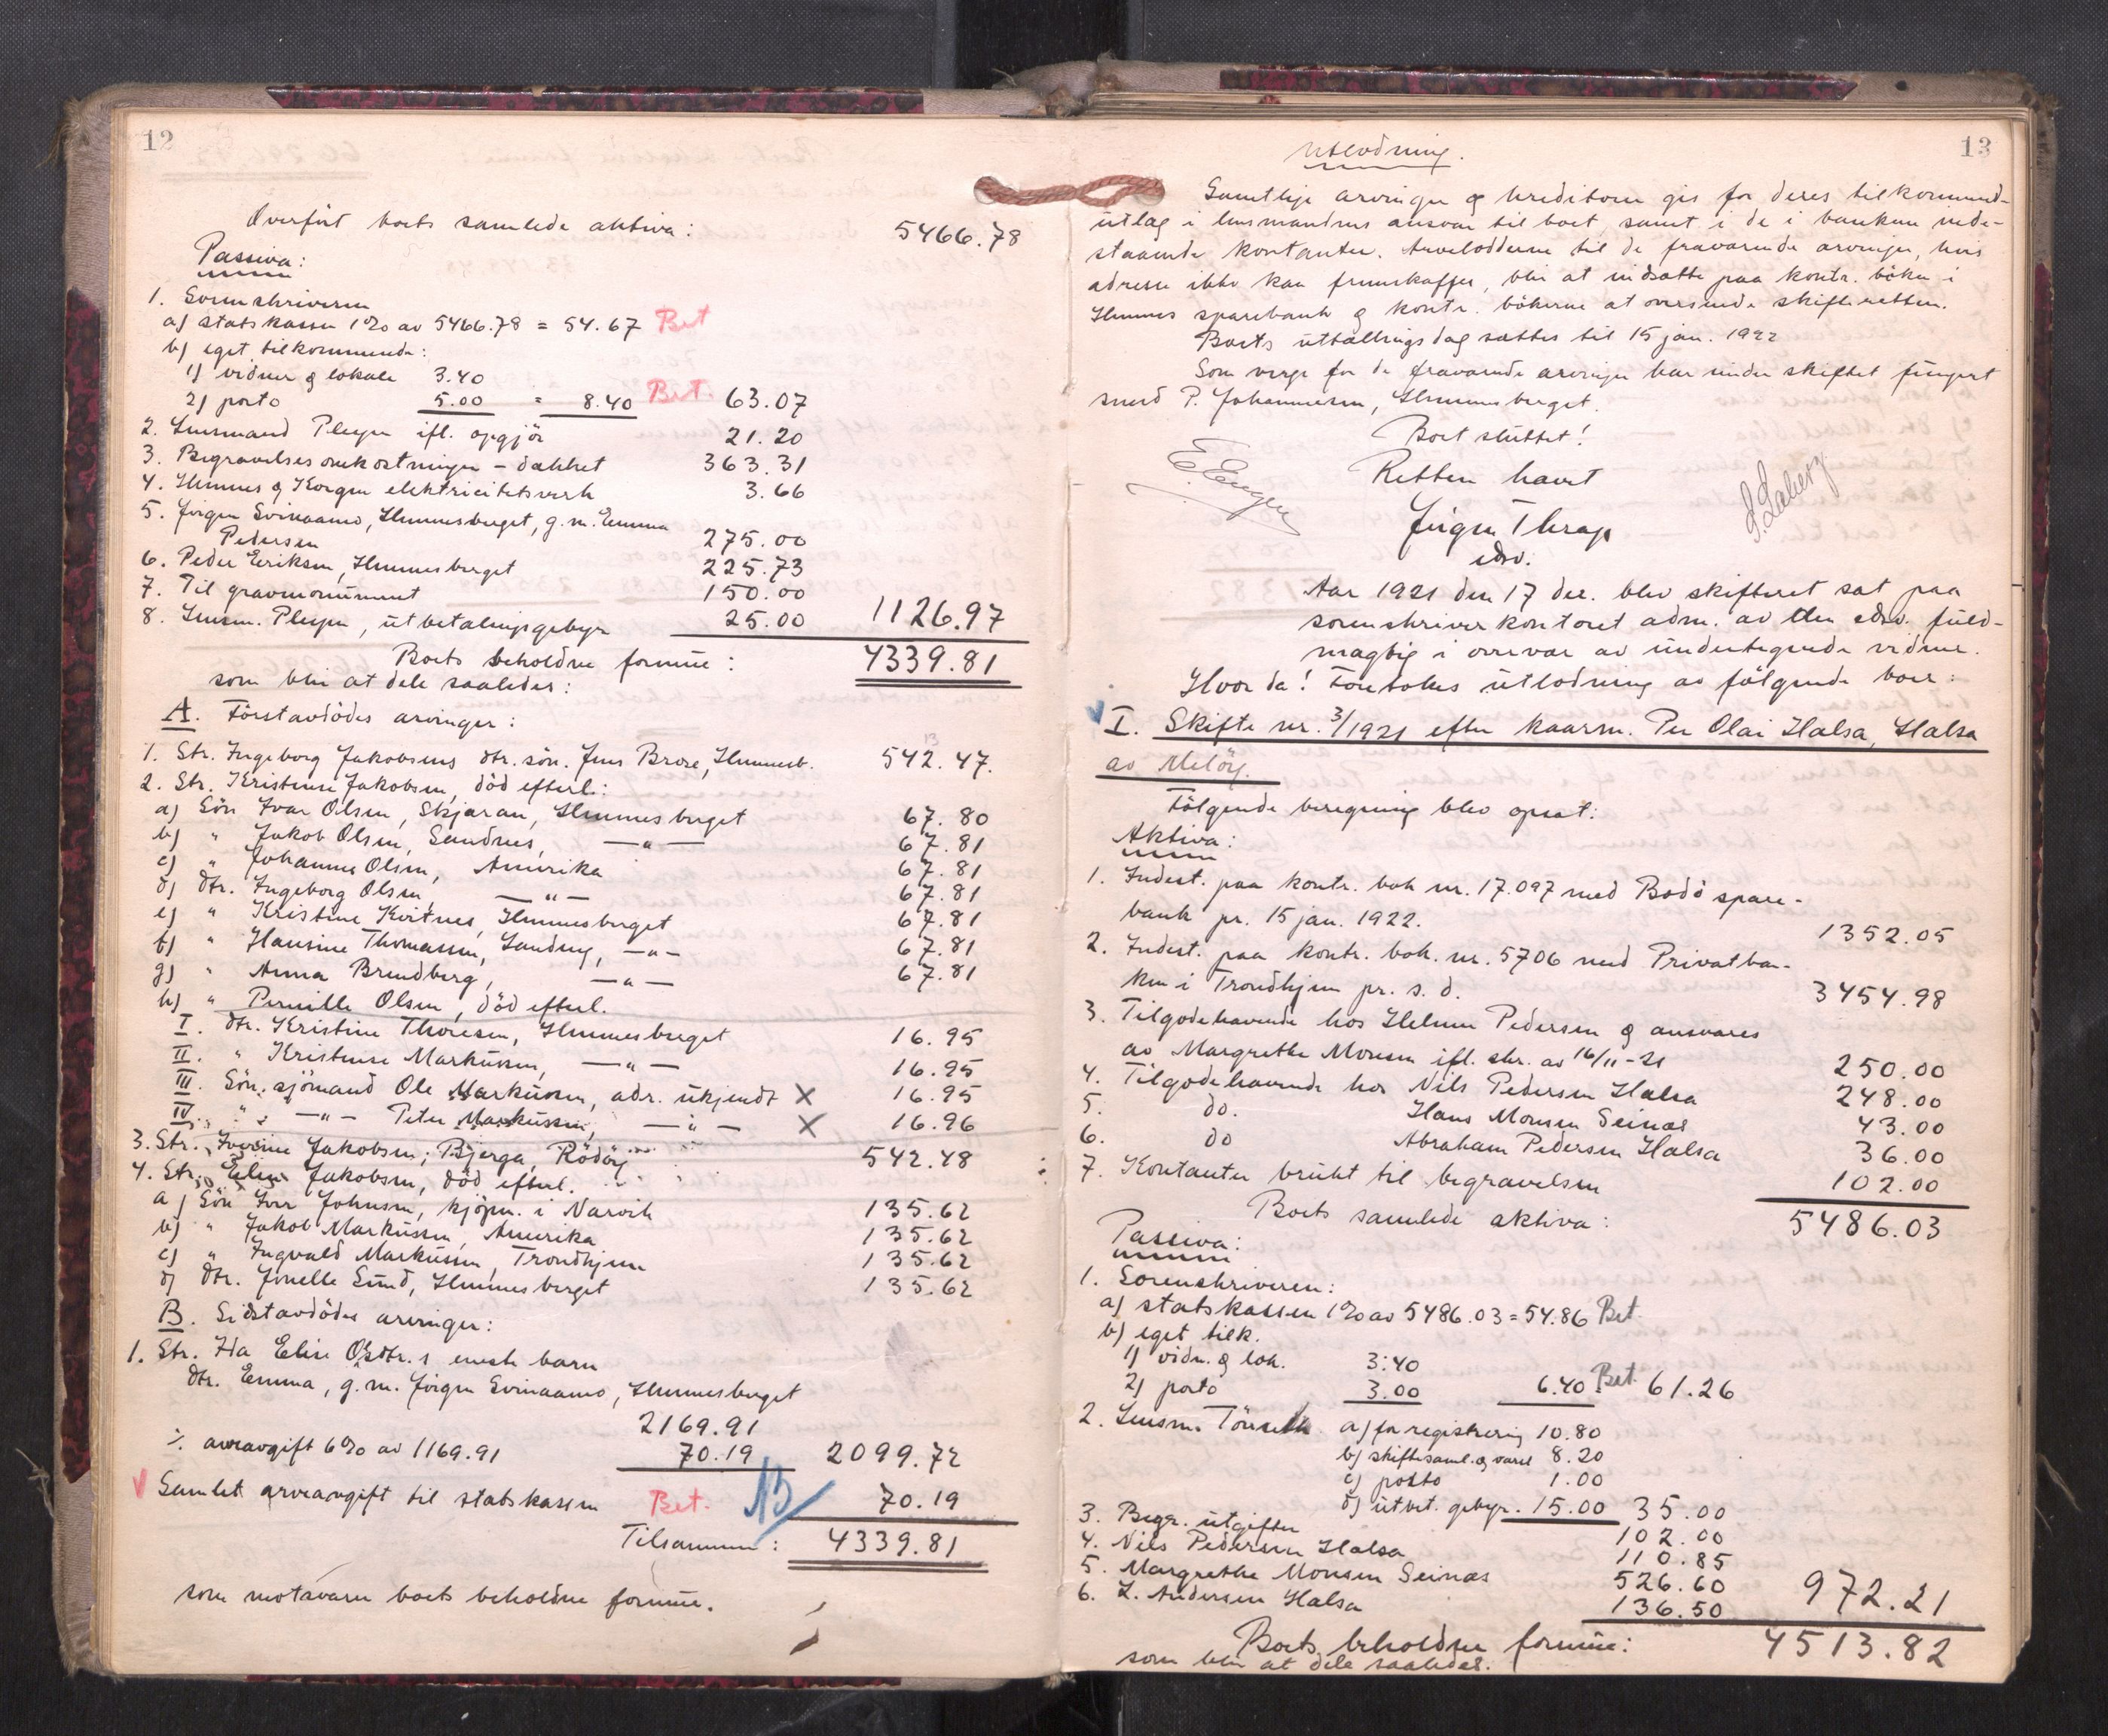 12
Overført boets samlede aktiva: 5466.78
Passiva:
1. Sorenskriveren
a) statskassen 1% av 5466.78 = 54.67 Bet
b) eget tilkommende:
1) vidner & lokale 3.40
2) porto 5.00 = 8.40 Bet. 63.07
2. Lensmand Pleym ifl. opgjör 21.20
3. Begravelsesomkostninger - dækket 363.31
4. Hemnes & Korgen elektricitetsverk 3.66
5. Jörgen Svinaamo, Hemnesberget, g.m. Emma
Pedersen 275.00
6. Peder Eriksen, Hemnesberget 225.73
7. Til gravmonument 150.00
8. Lensm. Pleym, utbetalingsgebyr 25.00 1126.97
Boets beholdne formue: 4339.81
som blir at dele saaledes:
A. Förstavdödes arvinger:
1. Str. Ingeborg Jakobsens dtr. sön. Jens Brose, Hemnesb. 542.47.
2. Str. Kristense Jakobsen, död efterl.:
a) Sön Ivar Olsen, Skjæran, Hemnesberget 67.80
b) " Jakob Olsen, Sandnes, —"— 67.81
c) " Johannes Olsen, Amerika 67.81
d) dtr. Ingeborg Olsen, —"— 67.81
e) " Kristine Kvitnes, Hemnesberget 67.81
f) " Hansine Thomassen, Sandneg, —"— 67.81
g) " Anna Brendberg, —"— 67.81
h) " Pernille Olsen, död efterl.
I. dtr. Kristine Thoresen, Hemnesberget 16.95
II. " Kristense Markusen, —"— 16.95
III. Sön. sjömand Ole Markusen, adr. ukjendt X 16.95
IV. " —"— Peter Markussen, —"— X 16.96
3. Str. Iverine Jakobsen, Bjerga, Rödöy 542.48
4. Str. Elen Jakobsen, död efterl.
a) Sön Iver Johnsen, kjöpm. i Narvik 135.62
b) " Jakob Markussen, Amerika 135.62
c) " Ingvald Markussen, Trondhjem 135.62
d) dtr. Jonelle Sund, Hemnesberget 135.62
B. Sidstavdödes arvinger:
1. Str. Ida Elise Olsdtr.s eneste barn
dtr. Emma, g.m. Jörgen Svinaamo, Hemnesberget
2169.91
÷ arveavgift 6% av 1169.91 70.19 2099.72
Samlet arveavgift til statskassen Bet. 13 70.19
Tilsammen: 4339.81
som motsvarer boets beholdne formue.
13
Utlodning.
Samtlige arvinger & kreditorer gis for deres tilkommende
utlæg i lensmandens ansvar til boet samt i de i banken inde-
staaende kontanter. Arveloddene til de fraværende arvinger, hvis
adresse ikke kan fremskaffes, blir at indsætte paa kontr. böker i
Hemnes sparebank & kontr. bökerne at oversende skifteretten.
Boets utbetalingsdag sættes til 15 jan. 1922
Som verge for de fraværende arvinger har under skiftet fungert
smed P. Johannesen, Hemnesberget.
Boet sluttet!
Retten hævet
Jörgen Thrap
edsv.
Aar 1921 den 17 dec. blev skifteret sat paa
sorenskriverkontoret adm. av den edsv. fuld-
mægtig i overvær av undertegnede vidner.
Hvor da! Foretokes utlodning av følgende boer:
I. Skifte nr. 3/1921 efter kaarm. Per Olai Halsa, Halsa
av Melöy.
Fölgende beregning blev opsat:
Aktiva:
1. Indest. paa kontr. bok nr. 17.097 med Bodö spare-
bank pr. 15 jan. 1922. 1352.05
2. Indest. paa kontr. bok. nr. 5706 med Privatban-
ken i Trondhjem pr. s. d. 3454.98
3. Tilgodehavende hos Helmer Pedersen & ansvares
av Margrethe Monsen ifl. skr. av 16/11-21 250.00
4. Tilgodehavende hos Nils Pedersen Halsa 248.00
5. do. Hans Monsen Seinæs 43.00
6. do Abraham Pedersen Halsa 36.00
7. Kontanter brukt til begravelsen 102.00
Boets samlede aktiva: 5486.03
Passiva:
1. Sorenskriveren:
a) statskassen 1% av 5486.03 = 54.86 Bet.
b) eget tilk.
1) vidn. & lok. 3.40
2) porto 3.00 6.40 Bet. 61.26
2. Lensm. Tönseth a) for registrering 10.80
b) skiftesaml. & varsl 8.20
c) porto 1.00
d) utbet. gebyr. 15.00 35.00
3. Begr. utgifter 102.00
4. Nils Pedersen Halsa 110.85
5. Margrethe Monsen Seinæs 526.60
6. L. Andersen Halsa 136.50 972.21
Boets beholdne formue: 4513.82
som blir at dele saaledes.